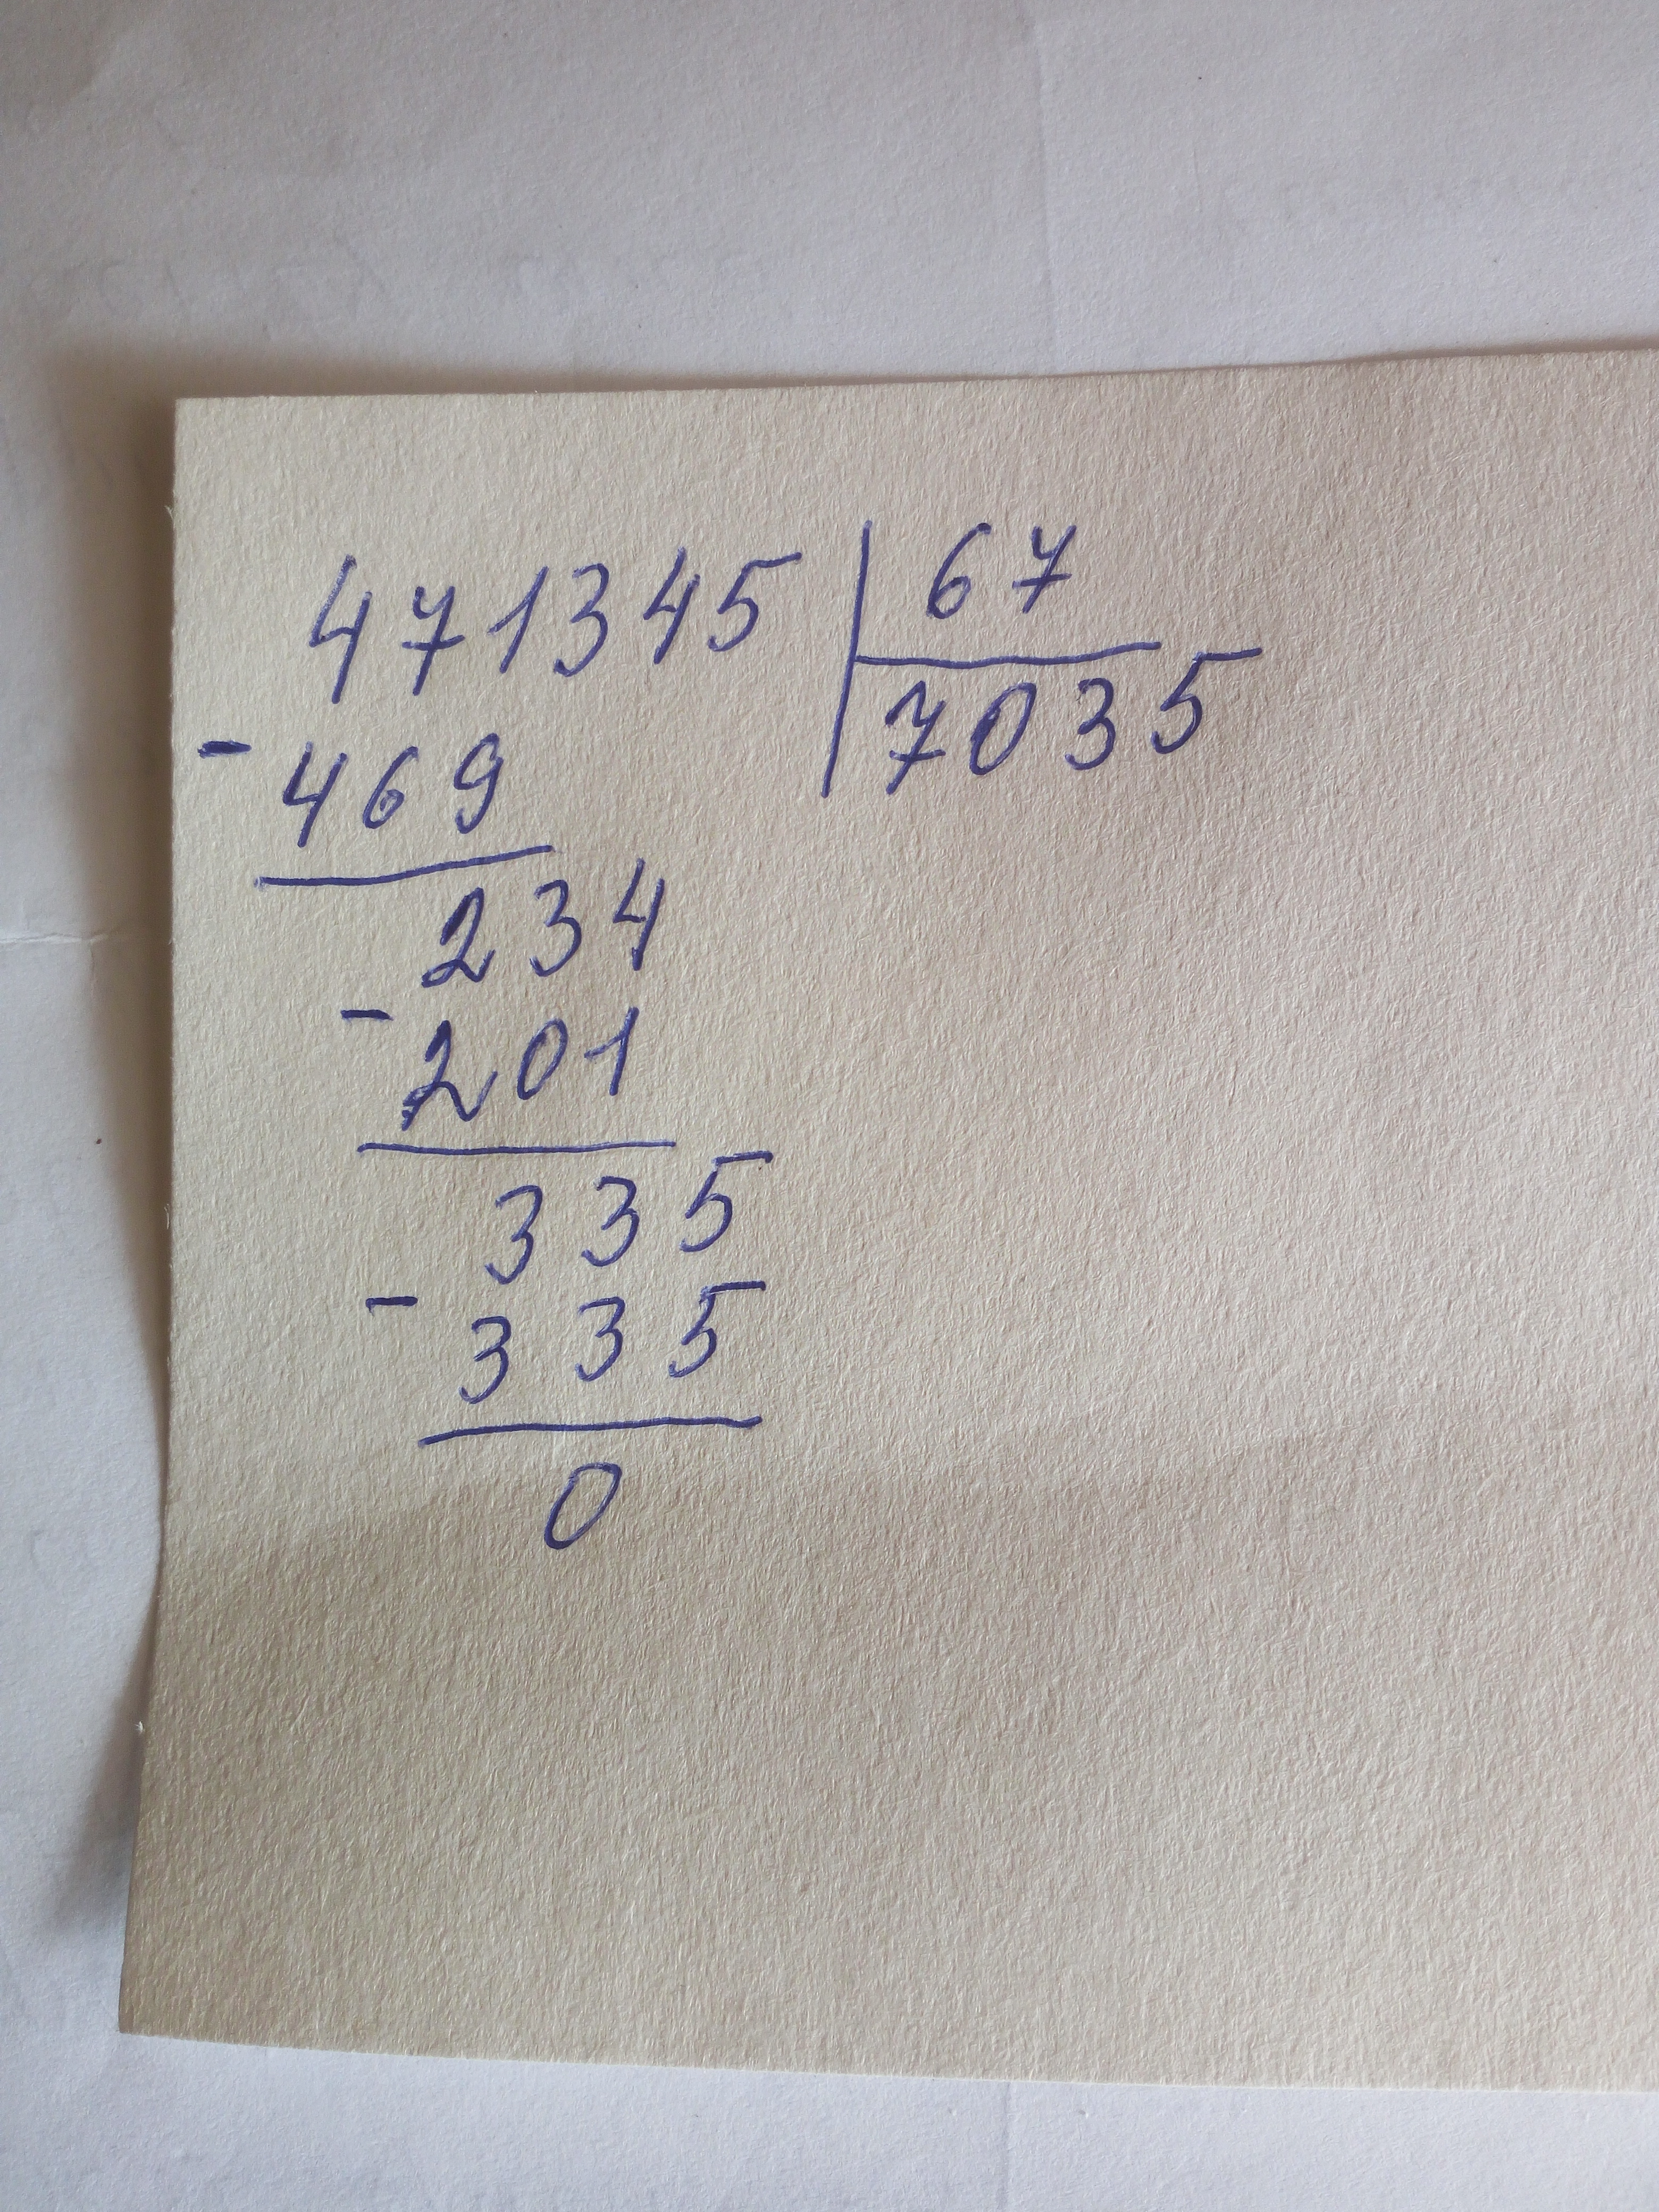 471345 | 67
- 469 | 7035
234
- 201
335
- 335
0